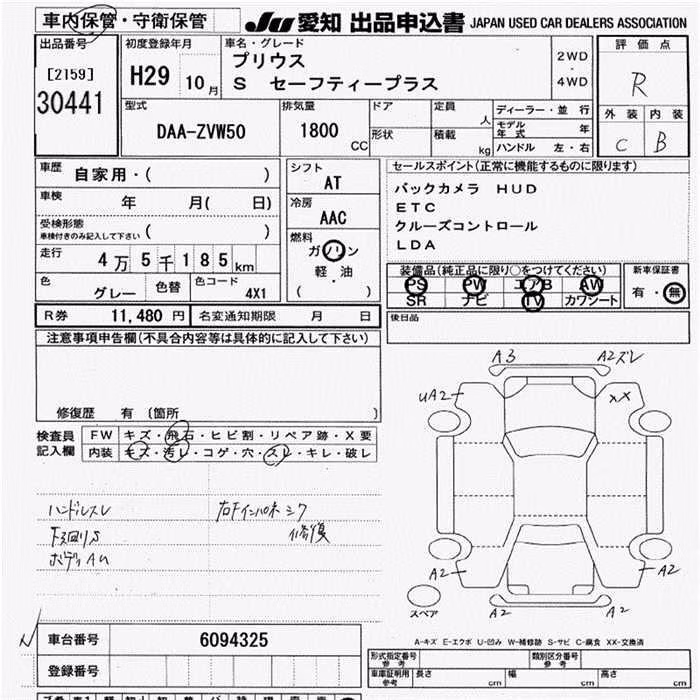 車内保管・守衛保管
JU 愛知 出品申込書 JAPAN USED CAR DEALERS ASSOCIATION
出品番号
[2159]
30441
初度登録年月
H29 10月
車名・グレード
プリウス
S セーフティープラス
2WD
・
4WD
評価点
R
外装 内装
C B
型式
DAA-ZVW50
排気量
1800
CC
ドア
形状
定員
人
積載
kg
ディーラー・並行
モデル年式 年
ハンドル 左・右
車歴
自家用・( )
車検
年 月( 日)
受検形態
車検付きのみ記入して下さい ( )
走行
4万5千185km
色
グレー
色替
色コード
4X1
シフト
AT
冷房
AAC
燃料
ガソリン
軽・油
( )
セールスポイント(正常に機能するものに限ります)
バックカメラ HUD
ETC
クルーズコントロール
LDA
装備品(純正品に限り○をつけてください)
PS PW エアB AW
SR ナビ TV カワシート
新車保証書
有・無
R券 11,480 円 名変通知期限 月 日
後日品
注意事項申告欄(不具合内容等は具体的に記入して下さい)
修復歴 有 〔箇所 〕
検査員
記入欄
FW キズ・飛石・ヒビ割・リペア跡・X要
内装 キズ・汚レ・コゲ・穴・スレ・キレ・破レ
ハンドルスレ
下廻りS
ボディAU
右Fインパネシワ
修復
A3
A2ズレ
UA2
XX
A2
A2
A2
A2
スペア
A-キズ E-エクボ U-凹み W-補修跡 S-サビ C-腐食 XX-交換済
車台番号 6094325
登録番号
形式指定番号
参考
類別区分番号
参考
車庫証明用
参考
長さ cm 幅 cm 高さ cm